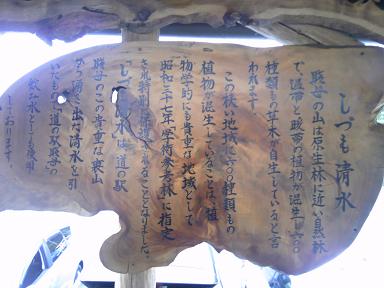 しづも清水
鷲母の山は原生林に近い自然林
で、温帯、暖帯の植物が混生し六〇〇
種類もの草木が自生していると言
われます。
この狭い地域に六〇〇種類もの
植物が混生していることは、植
物学的にも貴重な地域として
昭和三十七年「学術参考林」に指定
され特別に保護されることとなりました。
「しづも清水」は道の駅
のこの貴重な裏山
から湧き出た清水を引
いたもので道の駅
飲水としても使用
しております。